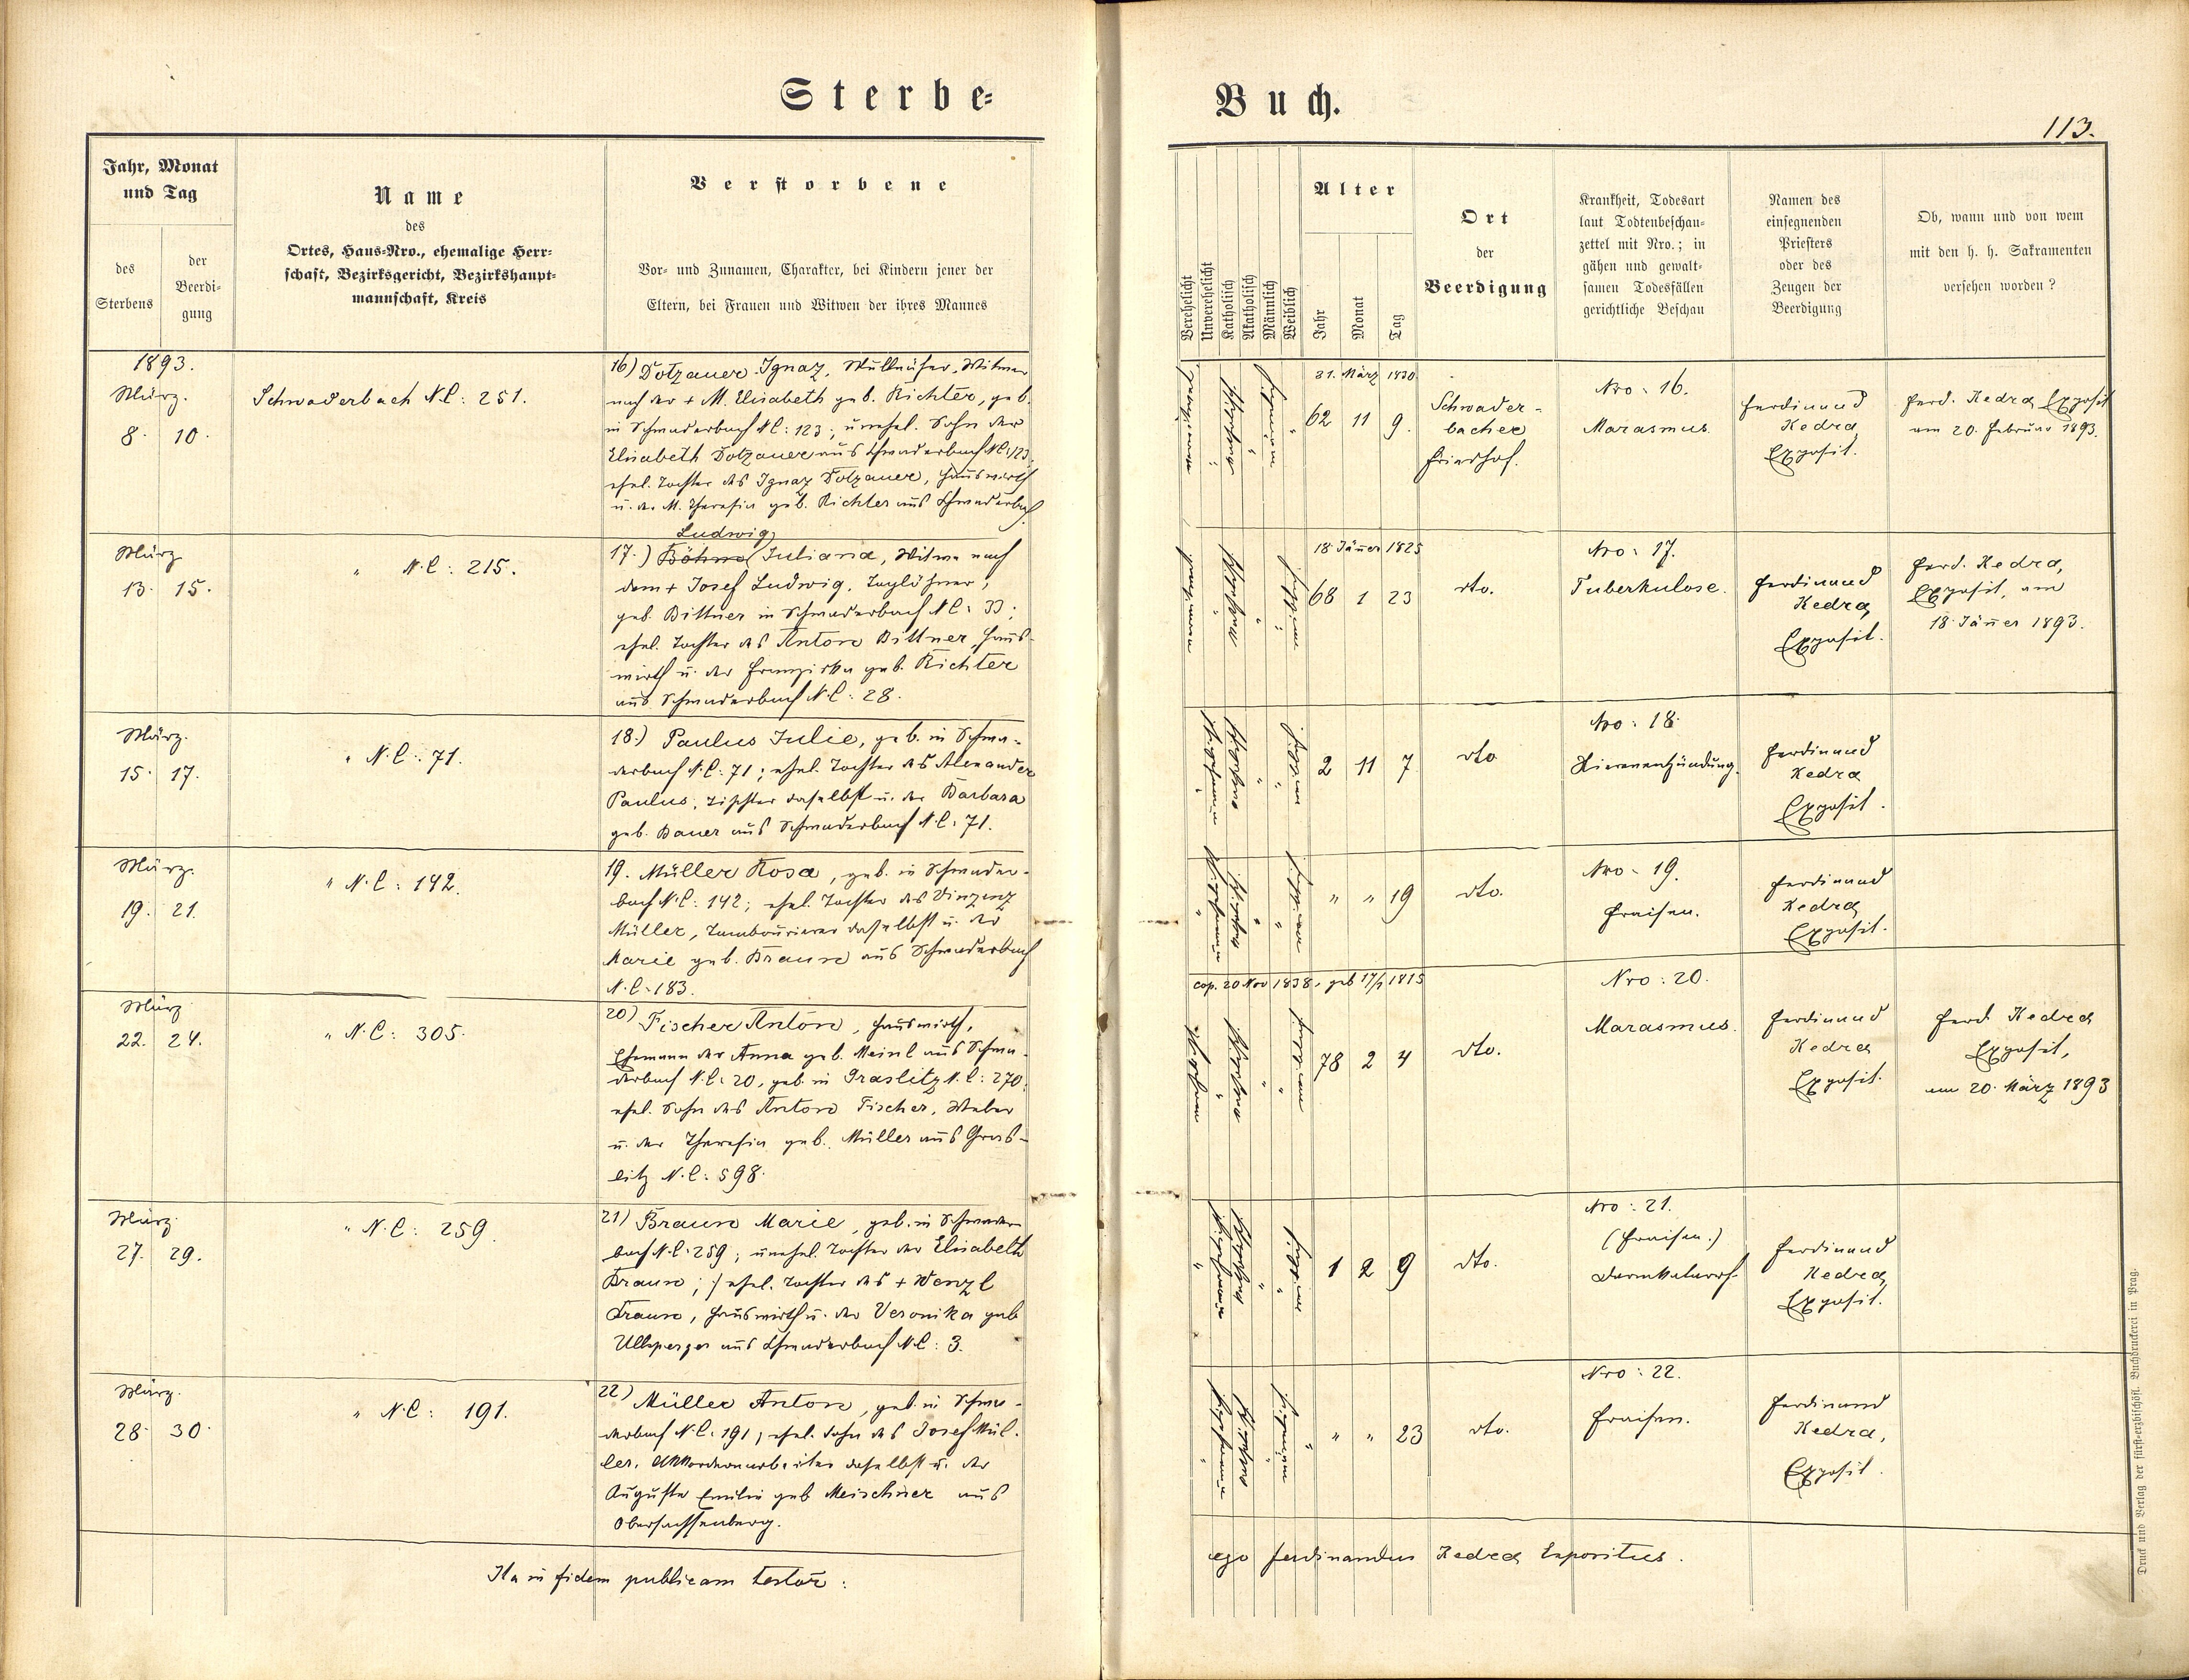 Sterbe-
Buch.
113.
Jahr, Monat
und Tag
des
Sterbens
der
Beerdi-
gung
Name
des
Ortes, Haus-Nro., ehemalige Herr-
schaft, Bezirksgericht, Bezirkshaupt-
mannschaft, Kreis
Verstorbene
Vor- und Zunamen, Charakter, bei Kindern jener der
Eltern, bei Frauen und Witwen der ihres Mannes
Verehelicht
Unverehelicht
Katholisch
Akatholisch
Männlich
Weiblich
Alter
Jahr
Monat
Tag
Ort
der
Beerdigung
Krankheit, Todesart
laut Todtenbeschau-
zettel mit Nro.; in
gähen und gewalt-
samen Todesfällen
gerichtliche Beschau
Namen des
einsegnenden
Priesters
oder des
Zeugen der
Beerdigung
Ob, wann und von wem
mit den h. h. Sakramenten
versehen worden?
1893.
März.
8. 10.
Schwaderbach N.C: 251.
16) Dotzauer Ignaz, Witwer
nach der + M. Elisabeth geb. Richter, geb.
in Schwaderbach N.C: 123; unehel. Sohn der
Elisabeth Dotzauer aus Schwaderbach N.C. 123,
ehel. Tochter des Ignaz Dotzauer, Hauswirth
u. der M. Theresia geb. Richter aus Schwaderbach
31. März 1830
62 11 9.
Schwader-
bacher
Friedhof.
Nro: 16.
Marasmus.
Ferdinand
Kedra
Exposit.
Ferd. Kedra Exposit
am 20. Februar 1893.
März
13. 15.
" N.C: 215.
Ludwig
17.) Böhm Juliana, Witwe nach
dem + Josef Ludwig, Taglöhner,
geb. Bittner in Schwaderbach N.C: 33;
ehel. Tochter des Anton Bittner, Haus-
wirth u. der Franziska geb. Richter
aus Schwaderbach N.C: 28.
18. Jäner 1825
68 1 23
dto.
Nro: 17.
Tuberkulose.
Ferdinand
Kedra,
Exposit.
Ferd. Kedra,
Exposit, am
18. Jäner 1893.
März.
15. 17.
" N.C: 71.
18.) Paulus Julie, geb. in Schwa-
derbach N.C: 71; ehel. Tochter des Alexander
Paulus, Tischler daselbst u. der Barbara
geb. Bauer aus Schwaderbach N.C: 71.
2 11 7
dto
Nro: 18.
Nierenentzündung.
Ferdinand
Kedra
Exposit.
März.
19. 21.
" N.C: 142.
19. Müller Rosa, geb. in Schwader-
bach N.C: 142; ehel. Tochter des Vinzenz
Müller, Tambourierer daselbst u. der
Marie geb. Braun aus Schwaderbach
N.C: 183.
" " 19
dto.
Nro: 19.
Fraisen.
Ferdinand
Kedra,
Exposit.
März
22. 24.
" N.C: 305.
20) Fischer Anton, Hauswirth,
Ehemann der Anna geb. Meinl aus Schwa-
derbach N.C: 20, geb. in Graslitz N.C: 270,
ehel. Sohn des Anton Fischer, Weber
u. der Theresia geb. Müller aus Gras-
litz N.C: 598.
cop. 20 Nov 1838, geb 17/1 1815
78 2 4
dto.
Nro: 20.
Marasmus.
Ferdinand
Kedra
Exposit.
Ferd. Kedra
Exposit,
am 20. März 1893
März
27. 29.
" N.C: 259.
21) Braun Marie, geb. in Schwader-
bach N.C: 259; unehel. Tochter der Elisabeth
Braun; / ehel. Tochter des + Wenzl
Braun, Hauswirth u. der Veronika geb
Ullsperger aus Schwaderbach N.C: 3.
1 2 9
dto.
Nro: 21.
(Fraisen.)
Darmkatarrh.
Ferdinand
Kedra,
Exposit.
März.
28. 30.
" N.C: 191.
22) Müller Anton, geb. in Schwa-
derbach N.C: 191, ehel. Sohn des Josef Mül-
ler, Akkordeonarbeiter daselbst u. der
Augusta Emilie geb Meischner aus
Obersachsenberg.
" " 23
dto.
Nro: 22.
Fraisen.
Ferdinand
Kedra,
Exposit.
Ita in fidem publicam testor:
ego Ferdinandus Kedra Expositus.
Druck und Verlag der fürst-erzbischöfl. Buchdruckerei in Prag.